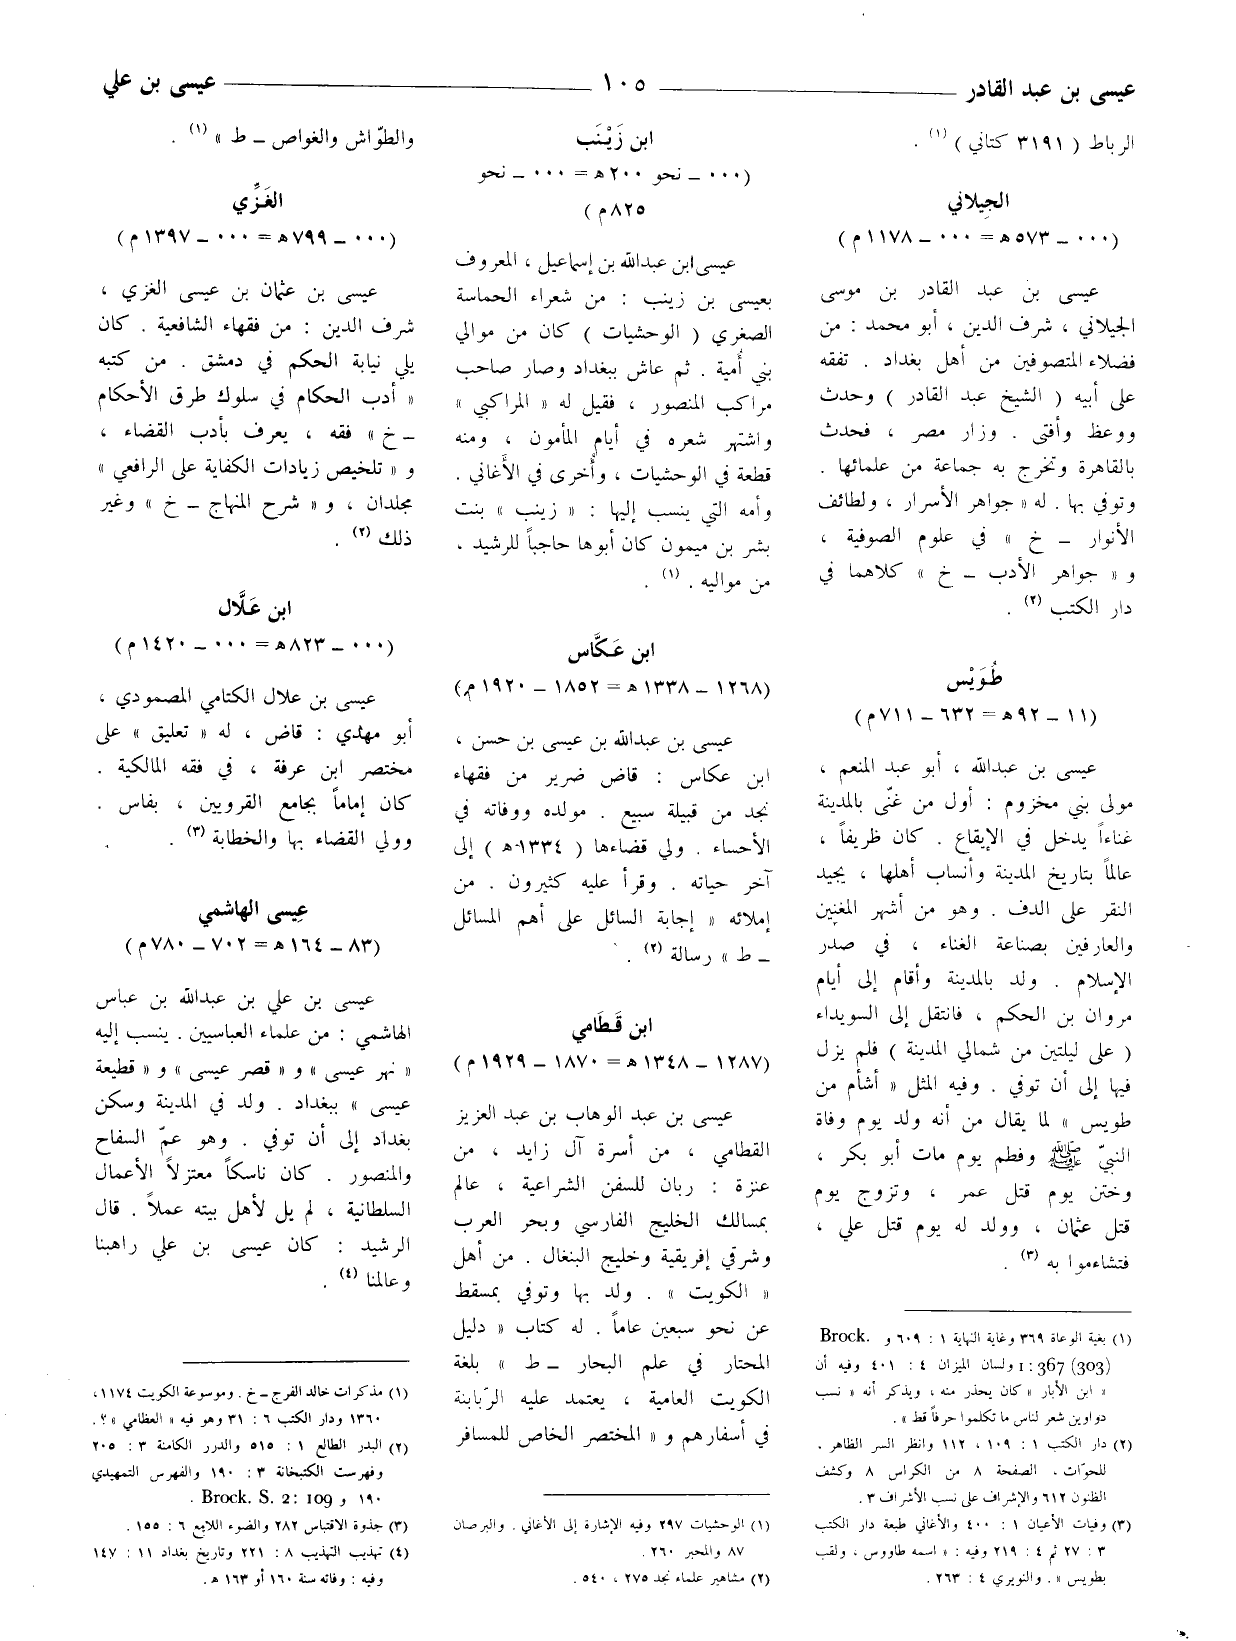 عيسى بن عبد القادر
١٠٥
عيسى بن علي
الرباط ( ٣١٩١ كتاني ) (١) .
الجيلاني
(٠٠٠ – ٥٧٣ ه = ٠٠٠ – ١١٧٨ م)
عيسى بن عبد القادر بن موسى
الجيلاني ، شرف الدين ، أبو محمد : من
فضلاء المتصوفين من أهل بغداد . تفقه
على أبيه ( الشيخ عبد القادر ) وحدث
ووعظ وأفتى . وزار مصر ، فحدث
بالقاهرة وتخرج به جماعة من علمائها .
وتوفي بها . له « جواهر الأسرار ، ولطائف
الأنوار – خ » في علوم الصوفية ،
و « جواهر الأدب – خ » كلاهما في
دار الكتب (٢) .
طُوَيْس
(١١ – ٩٢ ه = ٦٣٢ – ٧١١م)
عيسى بن عبدالله ، أبو عبد المنعم ،
مولى بني مخزوم : أول من غنّى بالمدينة
غناءاً يدخل في الإيقاع . كان ظريفاً ،
عالماً بتاريخ المدينة وأنساب أهلها ، يجيد
النقر على الدف . وهو من أشهر المغنين
والعارفين بصناعة الغناء ، في صدر
الإسلام . ولد بالمدينة وأقام إلى أيام
مروان بن الحكم ، فانتقل إلى السويداء
( على ليلتين من شمالي المدينة ) فلم يزل
فيها إلى أن توفي . وفيه المثل « أشأم من
طويس » لما يقال من أنه ولد يوم وفاة
النبيّ ﷺ وفطم يوم مات أبو بكر ،
وختن يوم قتل عمر ، وتزوج يوم
قتل عثمان ، وولد له يوم قتل علي ،
فتشاءموا به (٣) .
(١) بغية الوعاة ٣٦٩ وغاية النهاية ١ : ٦٠٩ و Brock.
1: 367 (303) ولسان الميزان ٤ : ٤٠١ وفيه أن
« ابن الأبار » كان يحذر منه ، ويذكر أنه « نسب
دواوين شعر لناس ما تكلموا حرفاً قط » .
(٢) دار الكتب ١ : ١٠٩ ، ١١٢ وانظر السر الظاهر .
للحوّات ، الصفحة ٨ من الكراس ٨ وكشف
الظنون ٦١٢ والإشراف على نسب الأشراف ٣ .
(٣) وفيات الأعيان ١ : ٤٠٠ والأغاني طبعة دار الكتب
٣ : ٢٧ ثم ٤ : ٢١٩ وفيه : « اسمه طاووس ، ولقب
بطويس » . والنويري ٤ : ٢٦٣ .
ابن زَيْنَب
(٠٠٠ – نحو ٢٠٠ ه = ٠٠٠ – نحو
٨٢٥م)
عيسى ابن عبدالله بن إسماعيل ، المعروف
بعيسى بن زينب : من شعراء الحماسة
الصغرى ( الوحشيات ) كان من موالي
بني أُمية . ثم عاش ببغداد وصار صاحب
مراكب المنصور ، فقيل له « المراكبي »
واشتهر شعره في أيام المأمون ، ومنه
قطعة في الوحشيات ، وأُخرى في الأغاني .
وأمه التي ينسب إليها : « زينب » بنت
بشر بن ميمون كان أبوها حاجباً للرشيد ،
من مواليه . (١) .
ابن عَكَّاس
(١٢٦٨ – ١٣٣٨ ه = ١٨٥٢ – ١٩٢٠ م)
عيسى بن عبدالله بن عيسى بن حسن ،
ابن عكاس : قاض ضرير من فقهاء
نجد من قبيلة سبيع . مولده ووفاته في
الأحساء . ولي قضاءها ( ١٣٣٤-ه ) إلى
آخر حياته . وقرأ عليه كثيرون . من
إملائه « إجابة السائل على أهم المسائل
– ط » رسالة (٢) .
ابن قَطَامي
(١٢٨٧ – ١٣٤٨ ه = ١٨٧٠ – ١٩٢٩ م)
عيسى بن عبد الوهاب بن عبد العزيز
القطامي ، من أسرة آل زايد ، من
عنزة : ربان للسفن الشراعية ، عالم
بمسالك الخليج الفارسي وبحر العرب
وشرقي إفريقية وخليج البنغال . من أهل
« الكويت » . ولد بها وتوفي بمسقط
عن نحو سبعين عاماً . له كتاب « دليل
المحتار في علم البحار – ط » بلغة
الكويت العامية ، يعتمد عليه الرّبابنة
في أسفارهم و « المختصر الخاص للمسافر
(١) الوحشيات ٢٩٧ وفيه الإشارة إلى الأغاني . والبرصان
٨٧ والمحبر ٢٦٠ .
(٢) مشاهير علماء نجد ٢٧٥ ، ٥٤٠ .
والطوّاش والغواص – ط » (١) .
الغَزِّي
(٠٠٠ – ٧٩٩ ه = ٠٠٠ – ١٣٩٧ م)
عيسى بن عثمان بن عيسى الغزي ،
شرف الدين : من فقهاء الشافعية . كان
يلي نيابة الحكم في دمشق . من كتبه
« أدب الحكام في سلوك طرق الأحكام
– خ » فقه ، يعرف بأدب القضاء ،
و « تلخيص زيادات الكفاية على الرافعي »
مجلدان ، و « شرح المنهاج – خ » وغير
ذلك (٢) .
ابن عَلَّال
(٠٠٠ – ٨٢٣ ه = ٠٠٠ – ١٤٢٠ م)
عيسى بن علال الكتامي المصمودي ،
أبو مهدي : قاض ، له « تعليق » على
مختصر ابن عرفة ، في فقه المالكية .
كان إماماً بجامع القرويين ، بفاس .
وولي القضاء بها والخطابة (٣) .
عِيسى الهاشمي
(٨٣ – ١٦٤ ه = ٧٠٢ – ٧٨٠ م)
عيسى بن علي بن عبدالله بن عباس
الهاشمي : من علماء العباسيين . ينسب إليه
« نهر عيسى » و « قصر عيسى » و « قطيعة
عيسى » ببغداد . ولد في المدينة وسكن
بغداد إلى أن توفي . وهو عمّ السفاح
والمنصور . كان ناسكاً معتزلاً الأعمال
السلطانية ، لم يل لأهل بيته عملاً . قال
الرشيد : كان عيسى بن علي راهبنا
وعالمنا (٤) .
(١) مذكرات خالد الفرج – خ . وموسوعة الكويت ١١٧٤ ،
١٣٦٠ ودار الكتب ٦ : ٣١ وهو فيه « العظامي » ؟ .
(٢) البدر الطالع ١ : ٥١٥ والدرر الكامنة ٣ : ٢٠٥
وفهرست الكتبخانة ٣ : ١٩٠ والفهرس التمهيدي
١٩٠ و Brock. S. 2: 109 .
(٣) جذوة الاقتباس ٢٨٢ والضوء اللامع ٦ : ١٥٥ .
(٤) تهذيب التهذيب ٨ : ٢٢١ وتاريخ بغداد ١١ : ١٤٧
وفيه : وفاته سنة ١٦٠ أو ١٦٣ ه .